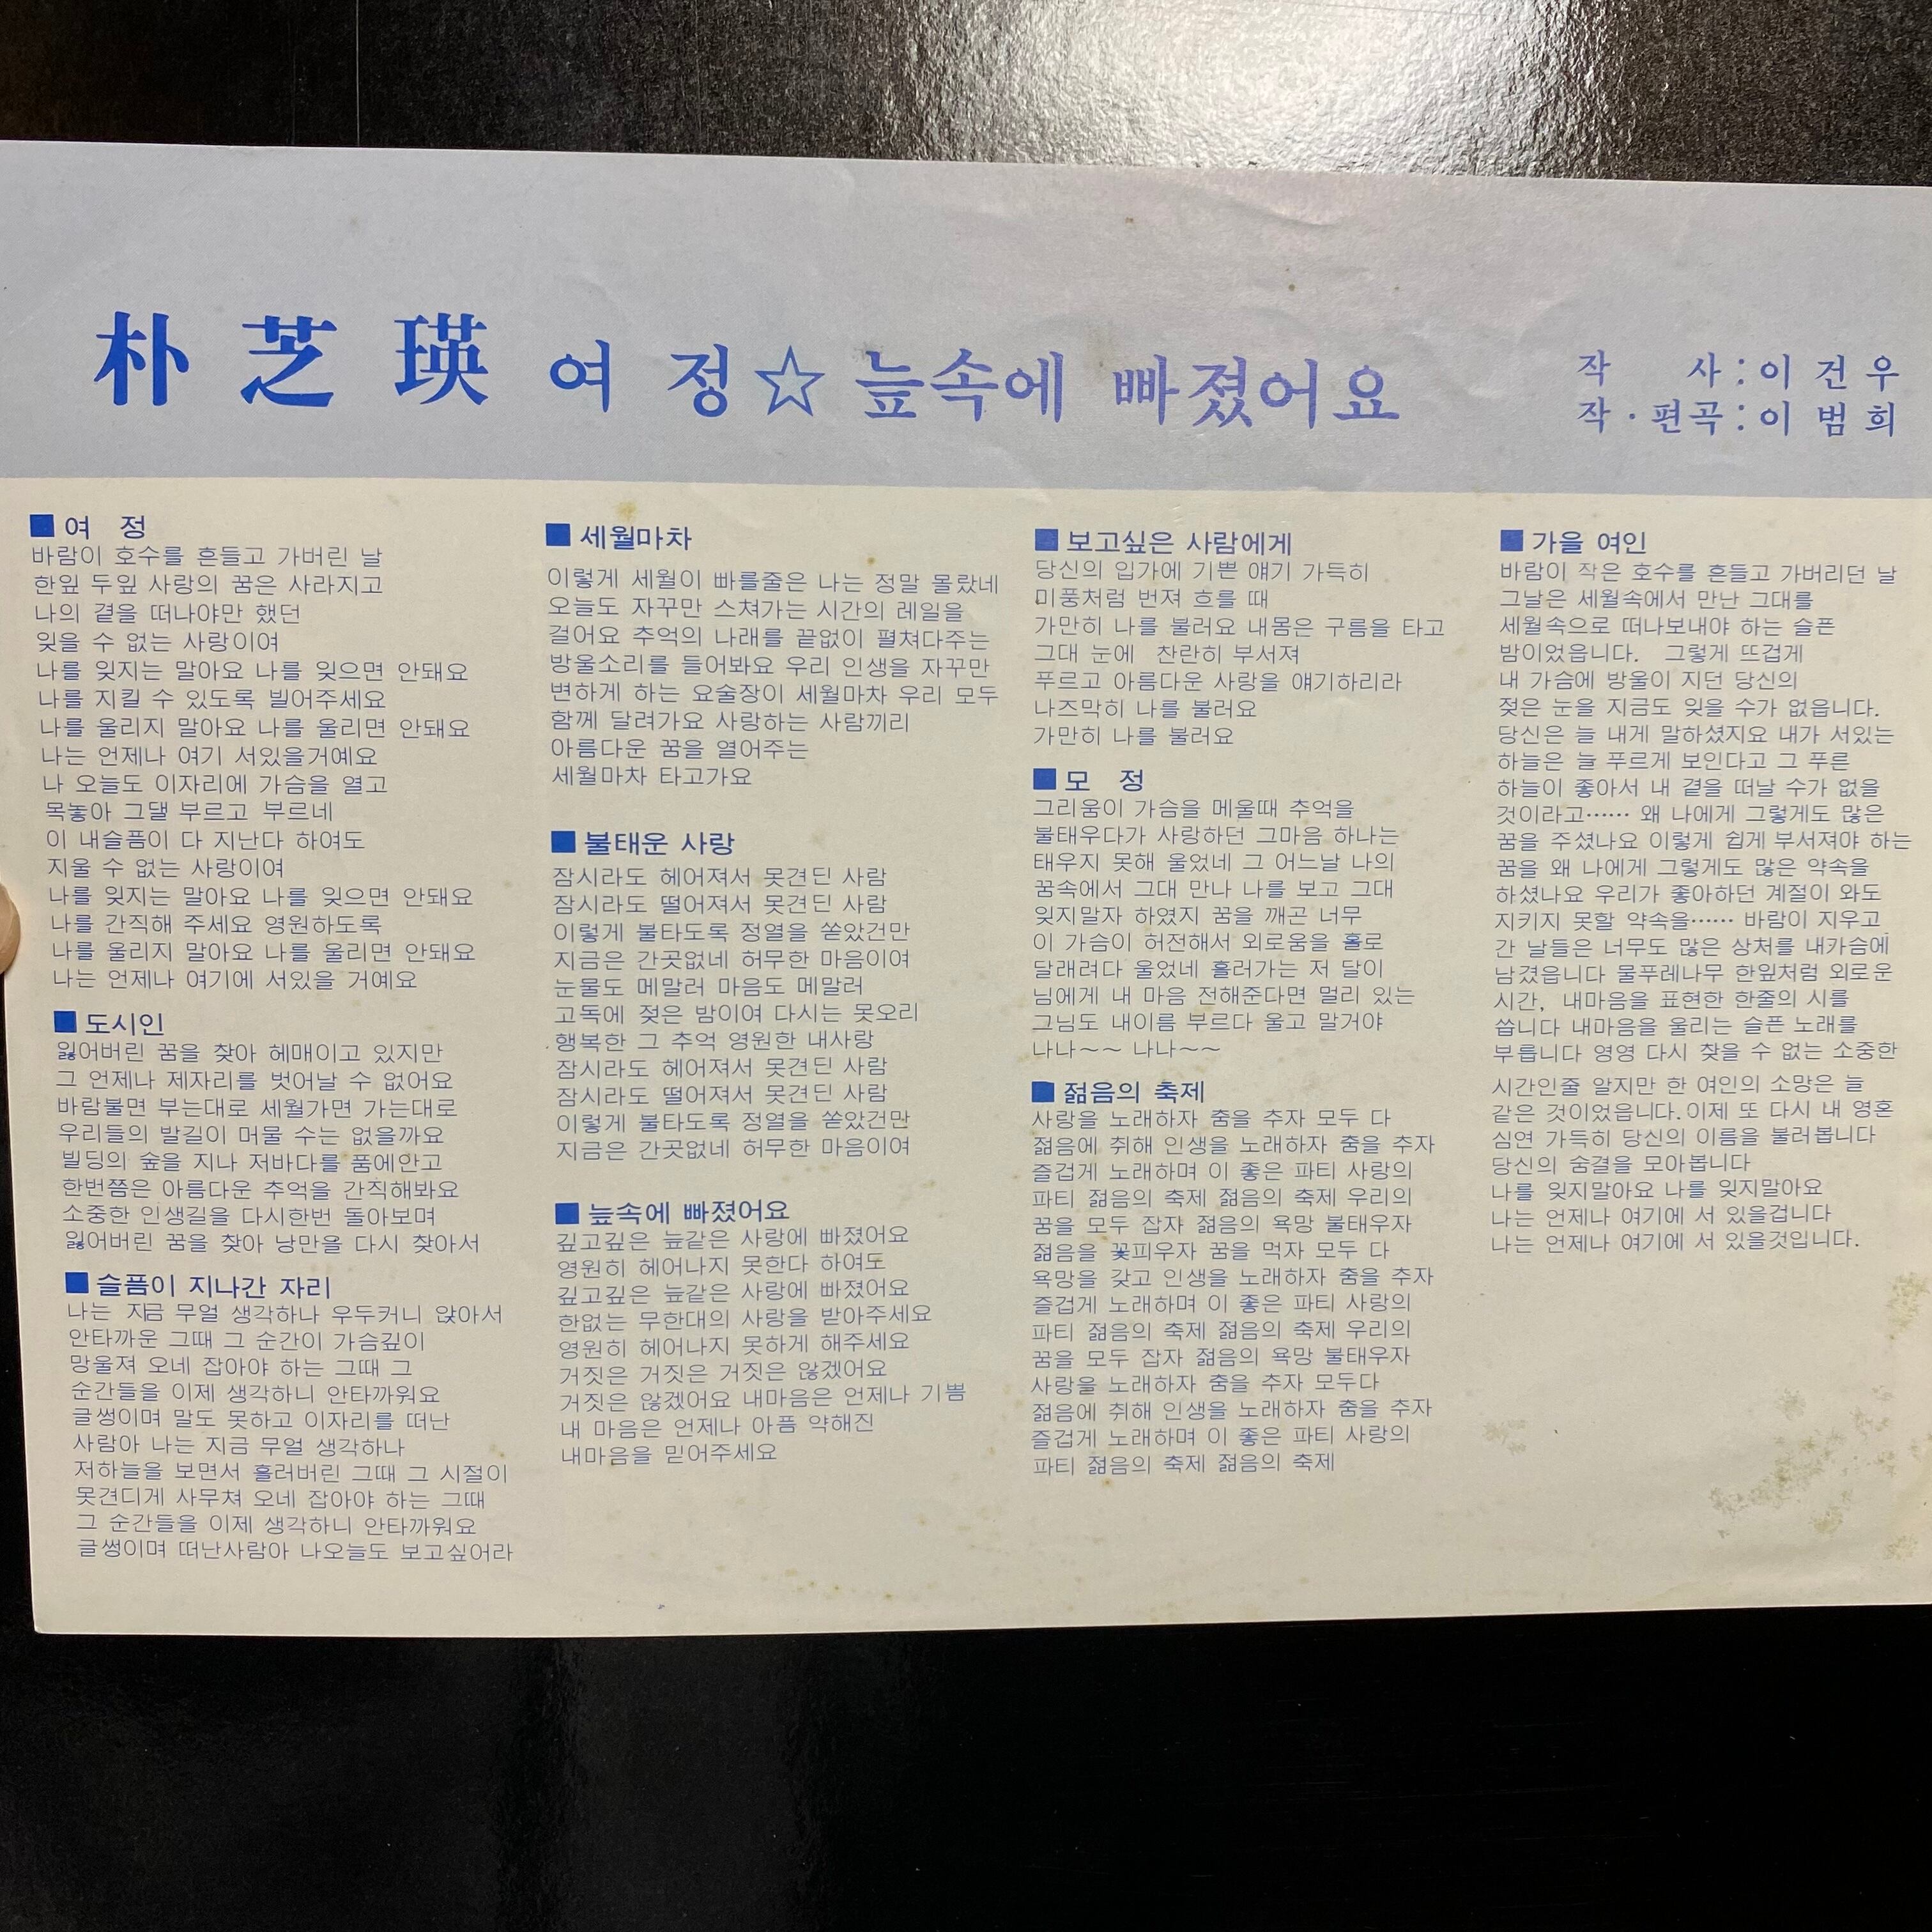 朴芝瑛 여 정☆늪속에 빠졌어요
작 사:이건우
작·편곡:이범희
■여 정
바람이 호수를 흔들고 가버린 날
한잎 두잎 사랑의 꿈은 사라지고
나의 곁을 떠나야만 했던
잊을 수 없는 사랑이여
나를 잊지는 말아요 나를 잊으면 안돼요
나를 지킬 수 있도록 빌어주세요
나를 울리지 말아요 나를 울리면 안돼요
나는 언제나 여기 서있을거예요
나 오늘도 이자리에 가슴을 열고
목놓아 그댈 부르고 부르네
이 내슬픔이 다 지난다 하여도
지울 수 없는 사랑이여
나를 잊지는 말아요 나를 잊으면 안돼요
나를 간직해 주세요 영원하도록
나를 울리지 말아요 나를 울리면 안돼요
나는 언제나 여기에 서있을 거예요
■도시인
잃어버린 꿈을 찾아 헤매이고 있지만
그 언제나 제자리를 벗어날 수 없어요
바람불면 부는대로 세월가면 가는대로
우리들의 발길이 머물 수는 없을까요
빌딩의 숲을 지나 저바다를 품에안고
한번쯤은 아름다운 추억을 간직해봐요
소중한 인생길을 다시한번 돌아보며
잃어버린 꿈을 찾아 낭만을 다시 찾아서
■슬픔이 지나간 자리
나는 지금 무얼 생각하나 우두커니 앉아서
안타까운 그때 그 순간이 가슴깊이
망울져 오네 잡아야 하는 그때 그
순간들을 이제 생각하니 안타까워요
글썽이며 말도 못하고 이자리를 떠난
사람아 나는 지금 무얼 생각하나
저하늘을 보면서 흘러버린 그때 그 시절이
못견디게 사무쳐 오네 잡아야 하는 그때
그 순간들을 이제 생각하니 안타까워요
글썽이며 떠난사람아 나오늘도 보고싶어라
■세월마차
이렇게 세월이 빠를줄은 나는 정말 몰랐네
오늘도 자꾸만 스쳐가는 시간의 레일을
걸어요 추억의 나래를 끝없이 펼쳐다주는
방울소리를 들어봐요 우리 인생을 자꾸만
변하게 하는 요술장이 세월마차 우리 모두
함께 달려가요 사랑하는 사람끼리
아름다운 꿈을 열어주는
세월마차 타고가요
■불태운 사랑
잠시라도 헤어져서 못견딘 사람
잠시라도 떨어져서 못견딘 사람
이렇게 불타도록 정열을 쏟았건만
지금은 간곳없네 허무한 마음이여
눈물도 메말러 마음도 메말러
고독에 젖은 밤이여 다시는 못오리
행복한 그 추억 영원한 내사랑
잠시라도 헤어져서 못견딘 사람
잠시라도 떨어져서 못견딘 사람
이렇게 불타도록 정열을 쏟았건만
지금은 간곳없네 허무한 마음이여
■늪속에 빠졌어요
깊고깊은 늪같은 사랑에 빠졌어요
영원히 헤어나지 못한다 하여도
깊고깊은 늪같은 사랑에 빠졌어요
한없는 무한대의 사랑을 받아주세요
영원히 헤어나지 못하게 해주세요
거짓은 거짓은 거짓은 않겠어요
거짓은 않겠어요 내마음은 언제나 기쁨
내 마음은 언제나 아픔 약해진
내마음을 믿어주세요
■보고싶은 사람에게
당신의 입가에 기쁜 얘기 가득히
미풍처럼 번져 흐를 때
가만히 나를 불러요 내몸은 구름을 타고
그대 눈에 찬란히 부서져
푸르고 아름다운 사랑을 얘기하리라
나즈막히 나를 불러요
가만히 나를 불러요
■모 정
그리움이 가슴을 메울때 추억을
불태우다가 사랑하던 그마음 하나는
태우지 못해 울었네 그 어느날 나의
꿈속에서 그대 만나 나를 보고 그대
잊지말자 하였지 꿈을 깨곤 너무
이 가슴이 허전해서 외로움을 홀로
달래려다 울었네 흘러가는 저 달이
님에게 내 마음 전해준다면 멀리 있는
그님도 내이름 부르다 울고 말거야
나나~~ 나나~~
■젊음의 축제
사랑을 노래하자 춤을 추자 모두 다
젊음에 취해 인생을 노래하자 춤을 추자
즐겁게 노래하며 이 좋은 파티 사랑의
파티 젊음의 축제 젊음의 축제 우리의
꿈을 모두 잡쟈 젊음의 욕망 불태우자
젊음을 꽃피우자 꿈을 먹자 모두 다
욕망을 갖고 인생을 노래하자 춤을 추자
즐겁게 노래하며 이 좋은 파티 사랑의
파티 젊음의 축제 젊음의 축제 우리의
꿈을 모두 잡자 젊음의 욕망 불태우자
사랑을 노래하자 춤을 추자 모두다
젊음에 취해 인생을 노래하자 춤을 추자
즐겁게 노래하며 이 좋은 파티 사랑의
파티 젊음의 축제 젊음의 축제
■가을 여인
바람이 작은 호수를 흔들고 가버리던 날
그날은 세월속에서 만난 그대를
세월속으로 떠나보내야 하는 슬픈
밤이었읍니다. 그렇게 뜨겁게
내 가슴에 방울이 지던 당신의
젖은 눈을 지금도 잊을 수가 없읍니다.
당신은 늘 내게 말하셨지요 내가 서있는
하늘은 늘 푸르게 보인다고 그 푸른
하늘이 좋아서 내 곁을 떠날 수가 없을
것이라고…… 왜 나에게 그렇게도 많은
꿈을 주셨나요 이렇게 쉽게 부서져야 하는
꿈을 왜 나에게 그렇게도 많은 약속을
하셨나요 우리가 좋아하던 계절이 와도
지키지 못할 약속을…… 바람이 지우고
간 날들은 너무도 많은 상처를 내가슴에
남겼읍니다 물푸레나무 한잎처럼 외로운
시간, 내마음을 표현한 한줄의 시를
씁니다 내마음을 울리는 슬픈 노래를
부릅니다 영영 다시 찾을 수 없는 소중한
시간인줄 알지만 한 여인의 소망은 늘
같은 것이었읍니다.이제 또 다시 내 영혼
심연 가득히 당신의 이름을 불러봅니다
당신의 숨결을 모아봅니다
나를 잊지말아요 나를 잊지말아요
나는 언제나 여기에 서 있을겁니다
나는 언제나 여기에 서 있을것입니다.